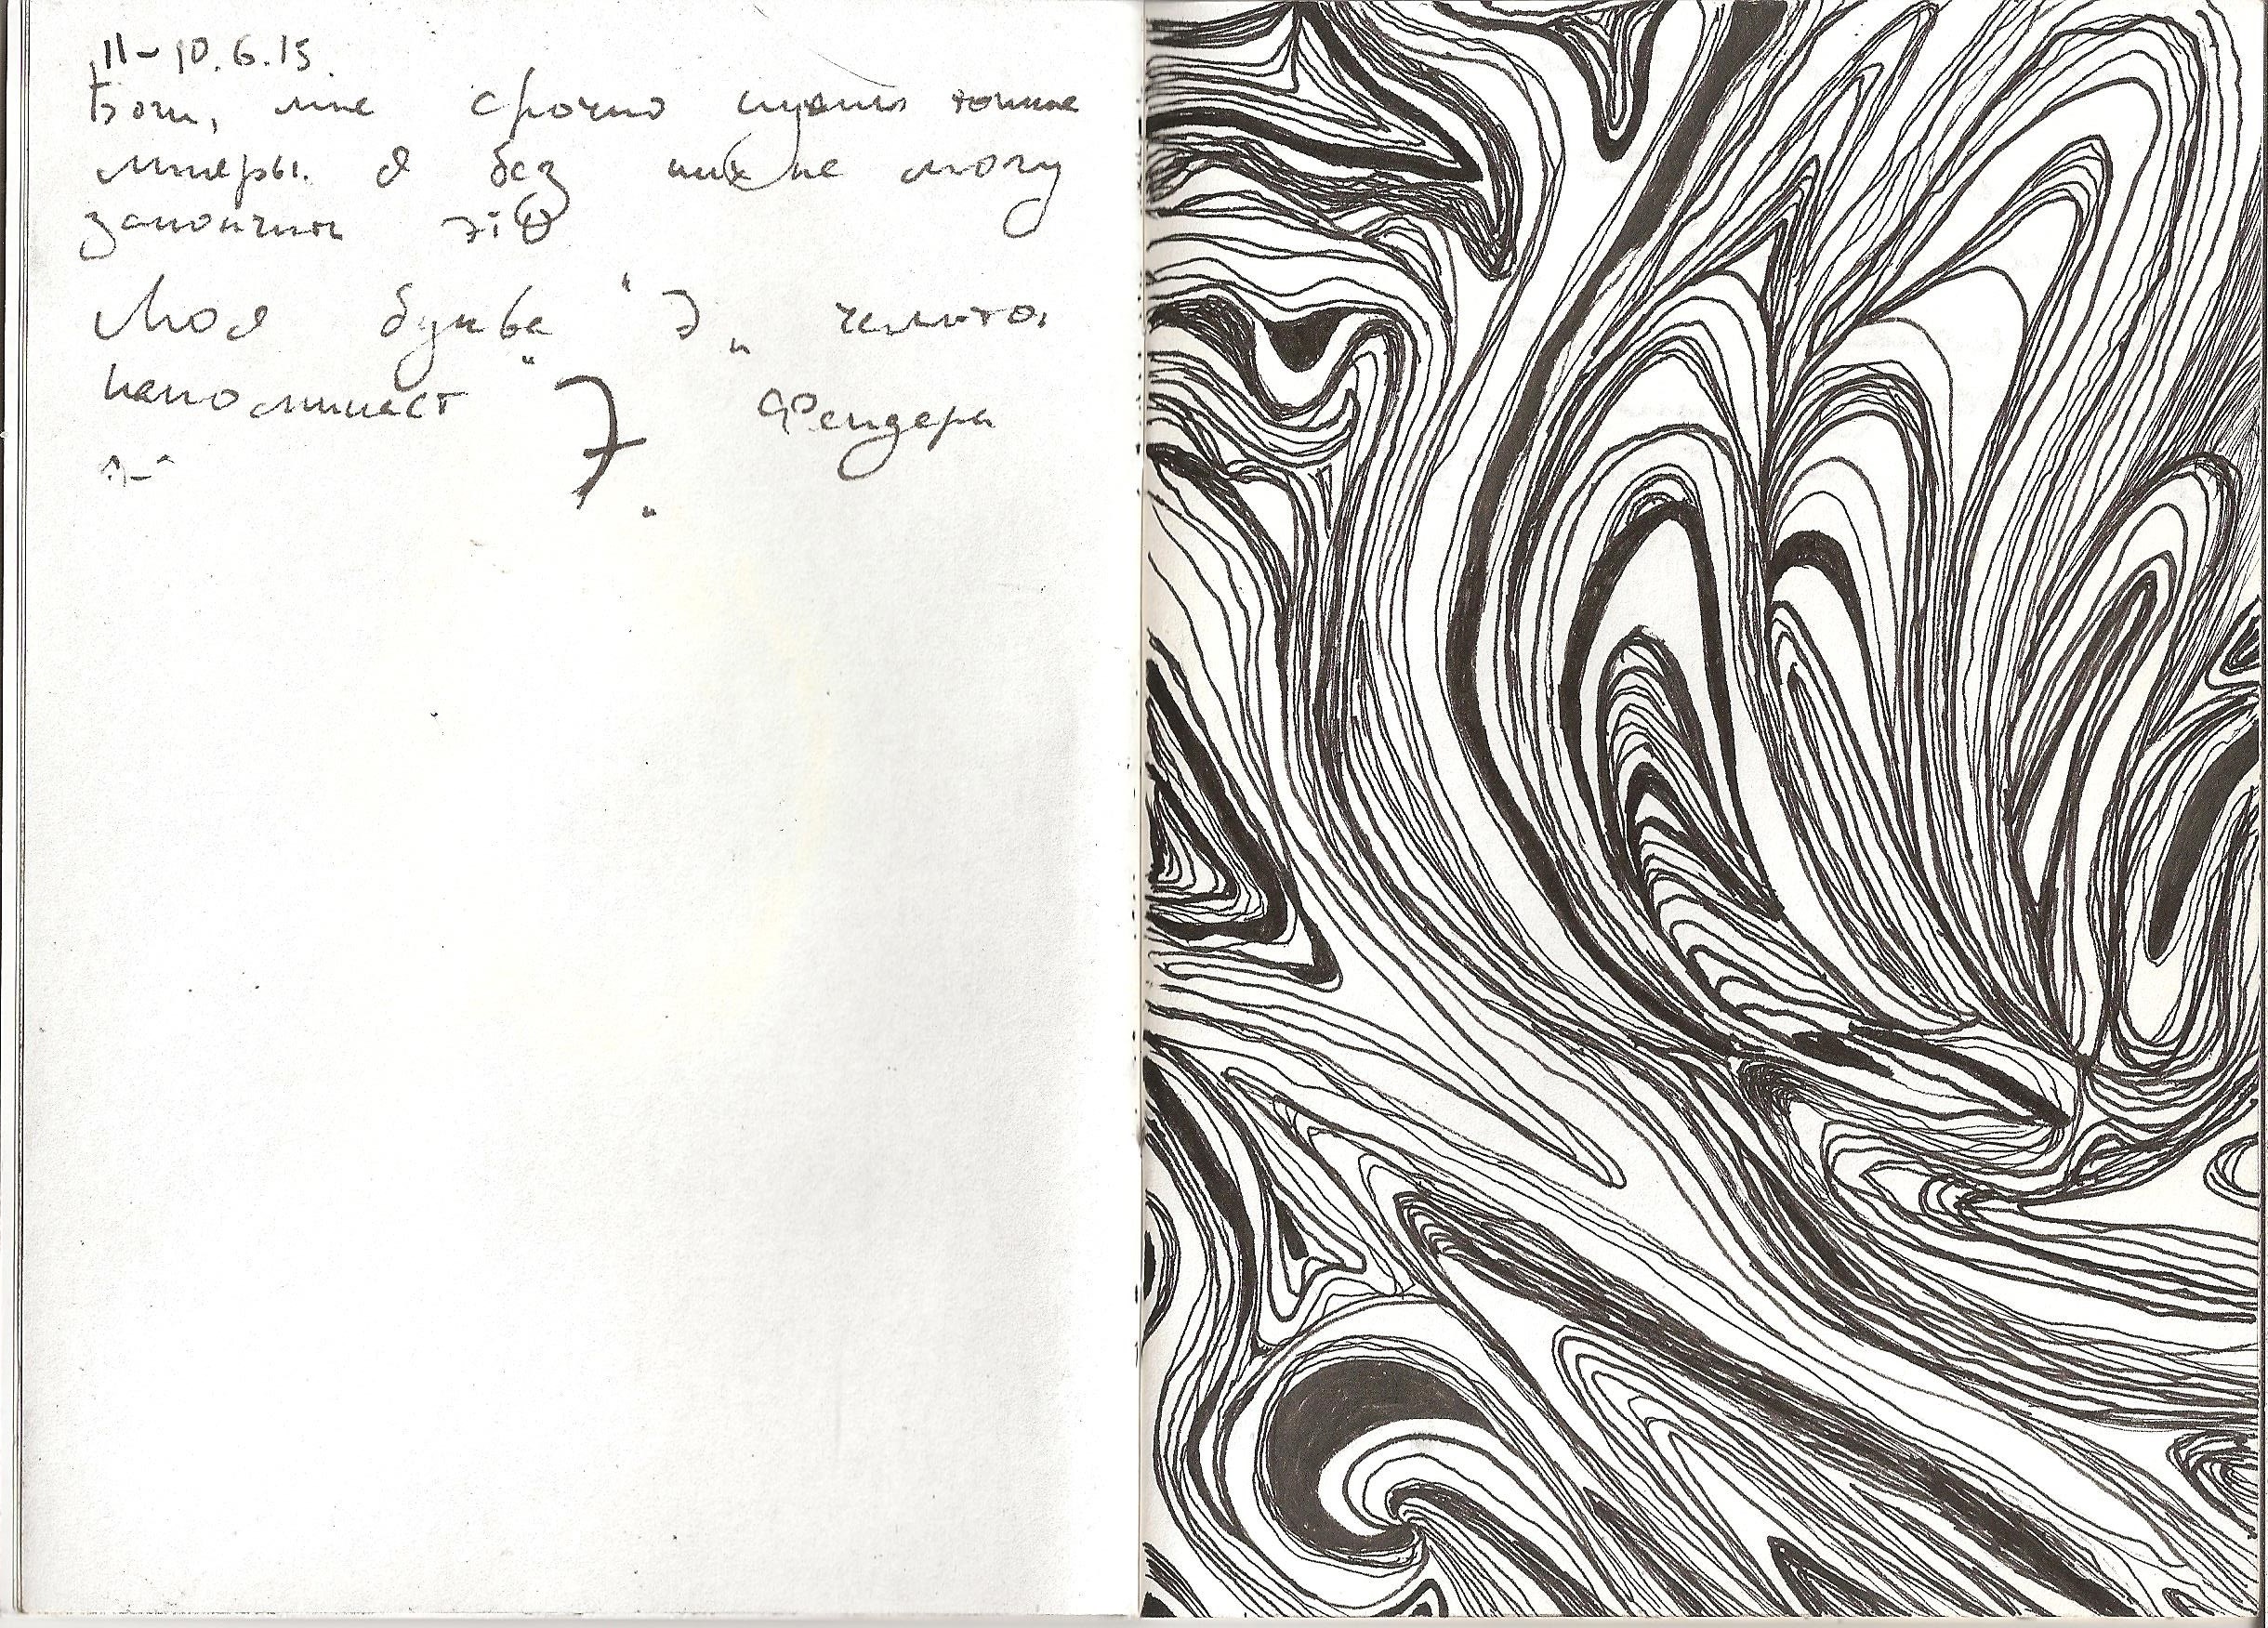 11-10.6.15.
Боги, мне срочно нужны тонкие
линеры. Я без них не могу
закончить это
Моя буква "Э"
напоминает "Э" Фендера
^-^